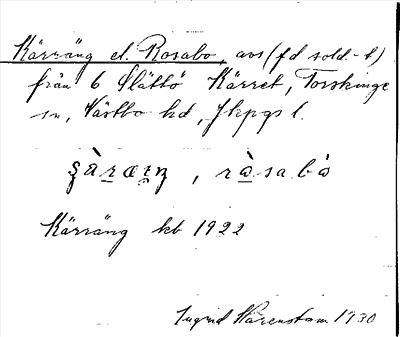 Kärräng el. Rosabo, avs (f d sold.-t)
från 6 Slättö Kärret, Torskinge
sn, Västbo hd, Jkpgs l.
rò̱sabò
Kärräng kb 1922
Ingrid Warenstam 1930